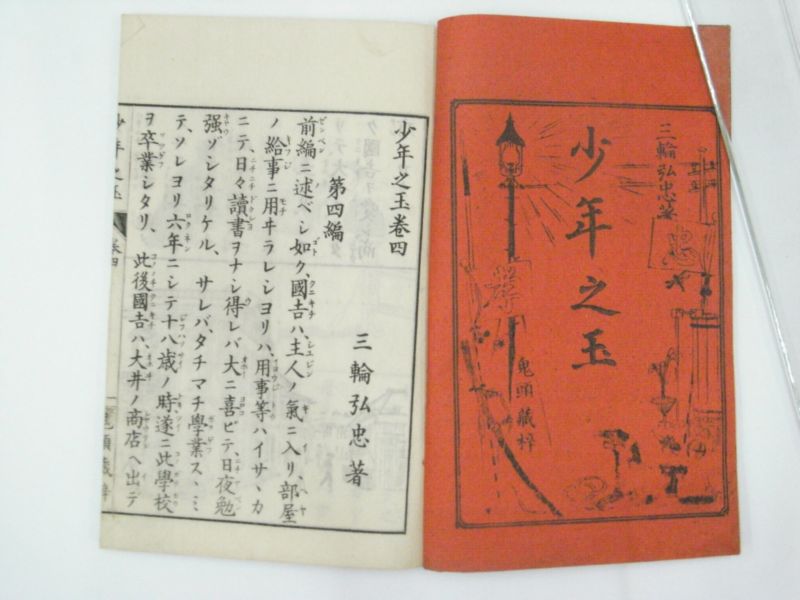 三輪弘忠著
少年之玉
鬼頭藏梓
少年之玉卷四
第四編
三輪弘忠著
前編ニ述ベシ如ク、國吉ハ、主人ノ氣ニ入リ、部屋
ノ給事ニ用ヰラレシヨリハ、用事等ハイサヽカ
ニテ、日々讀書ヲナシ得レバ大ニ喜ビテ、日夜勉
强ゾシタリケル、サレバ、タチマチ學業スヽミ
テ、ソレヨリ六年ニシテ十八歳ノ時遂ニ此學校
ヲ卒業シタリ、此後國吉ハ、大井ノ商店ヘ出デ
少年之玉
卷四
鬼頭藏梓